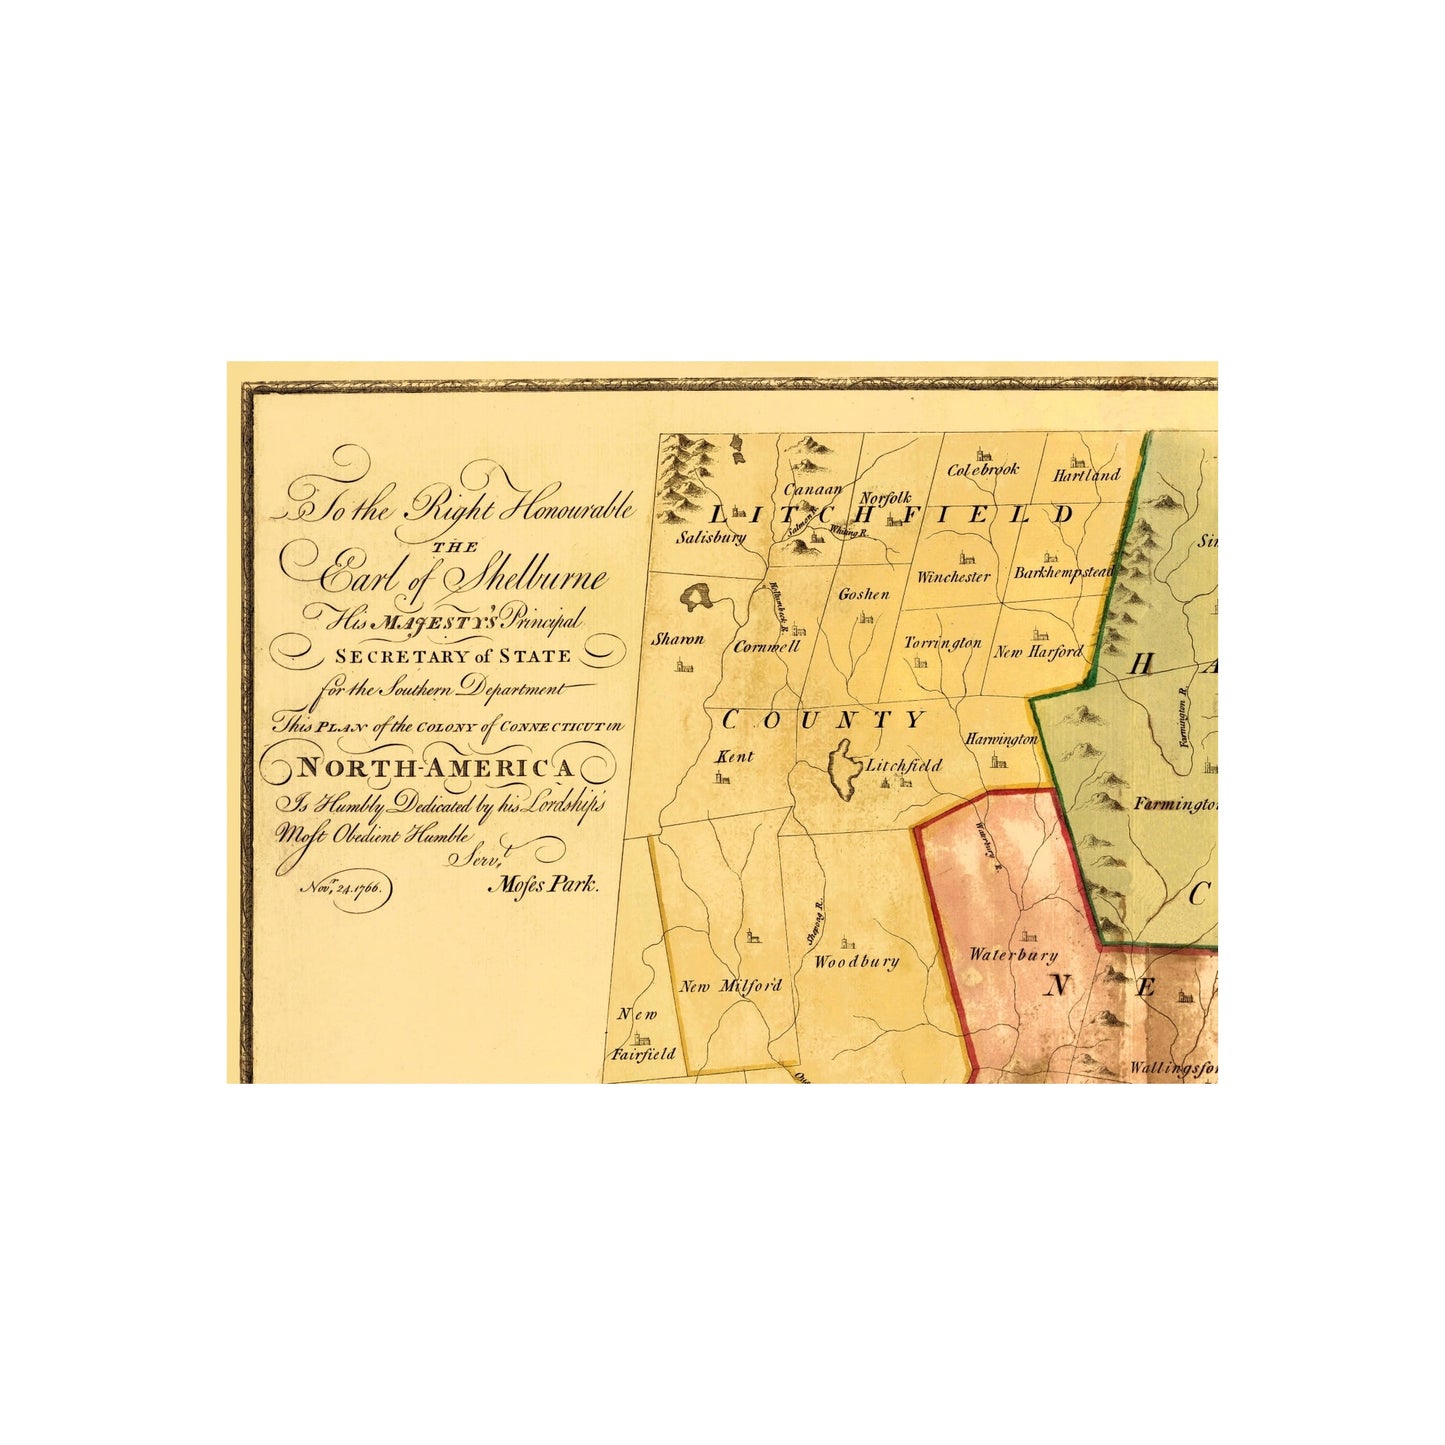 To the Right Honourable
THE
Earl of Shelburne
His MAJESTY'S Principal
SECRETARY of STATE
for the Southern Department
This PLAN of the COLONY of CONNECTICUT in
NORTH-AMERICA
Is Humbly Dedicated by his Lordship's
Most Obedient Humble
Servt,
Novr, 24. 1766.
Moses Park.
LITCHFIELD
COUNTY
Colebrook
Hartland
Canaan
Norfolk
Salisbury
Salmon R.
Whiting R.
Winchester
Barkhempstead
Goshen
Hollenbeck R.
Sharon
Cornwell
Torrington
New Harford
Kent
Litchfield
Harwington
Waterbury R.
Shepong R.
Woodbury
New Milford
New
Fairfield
Waterbury
N E
Wallingsfor
H A
Sin
Farmington R.
Farmingto
C